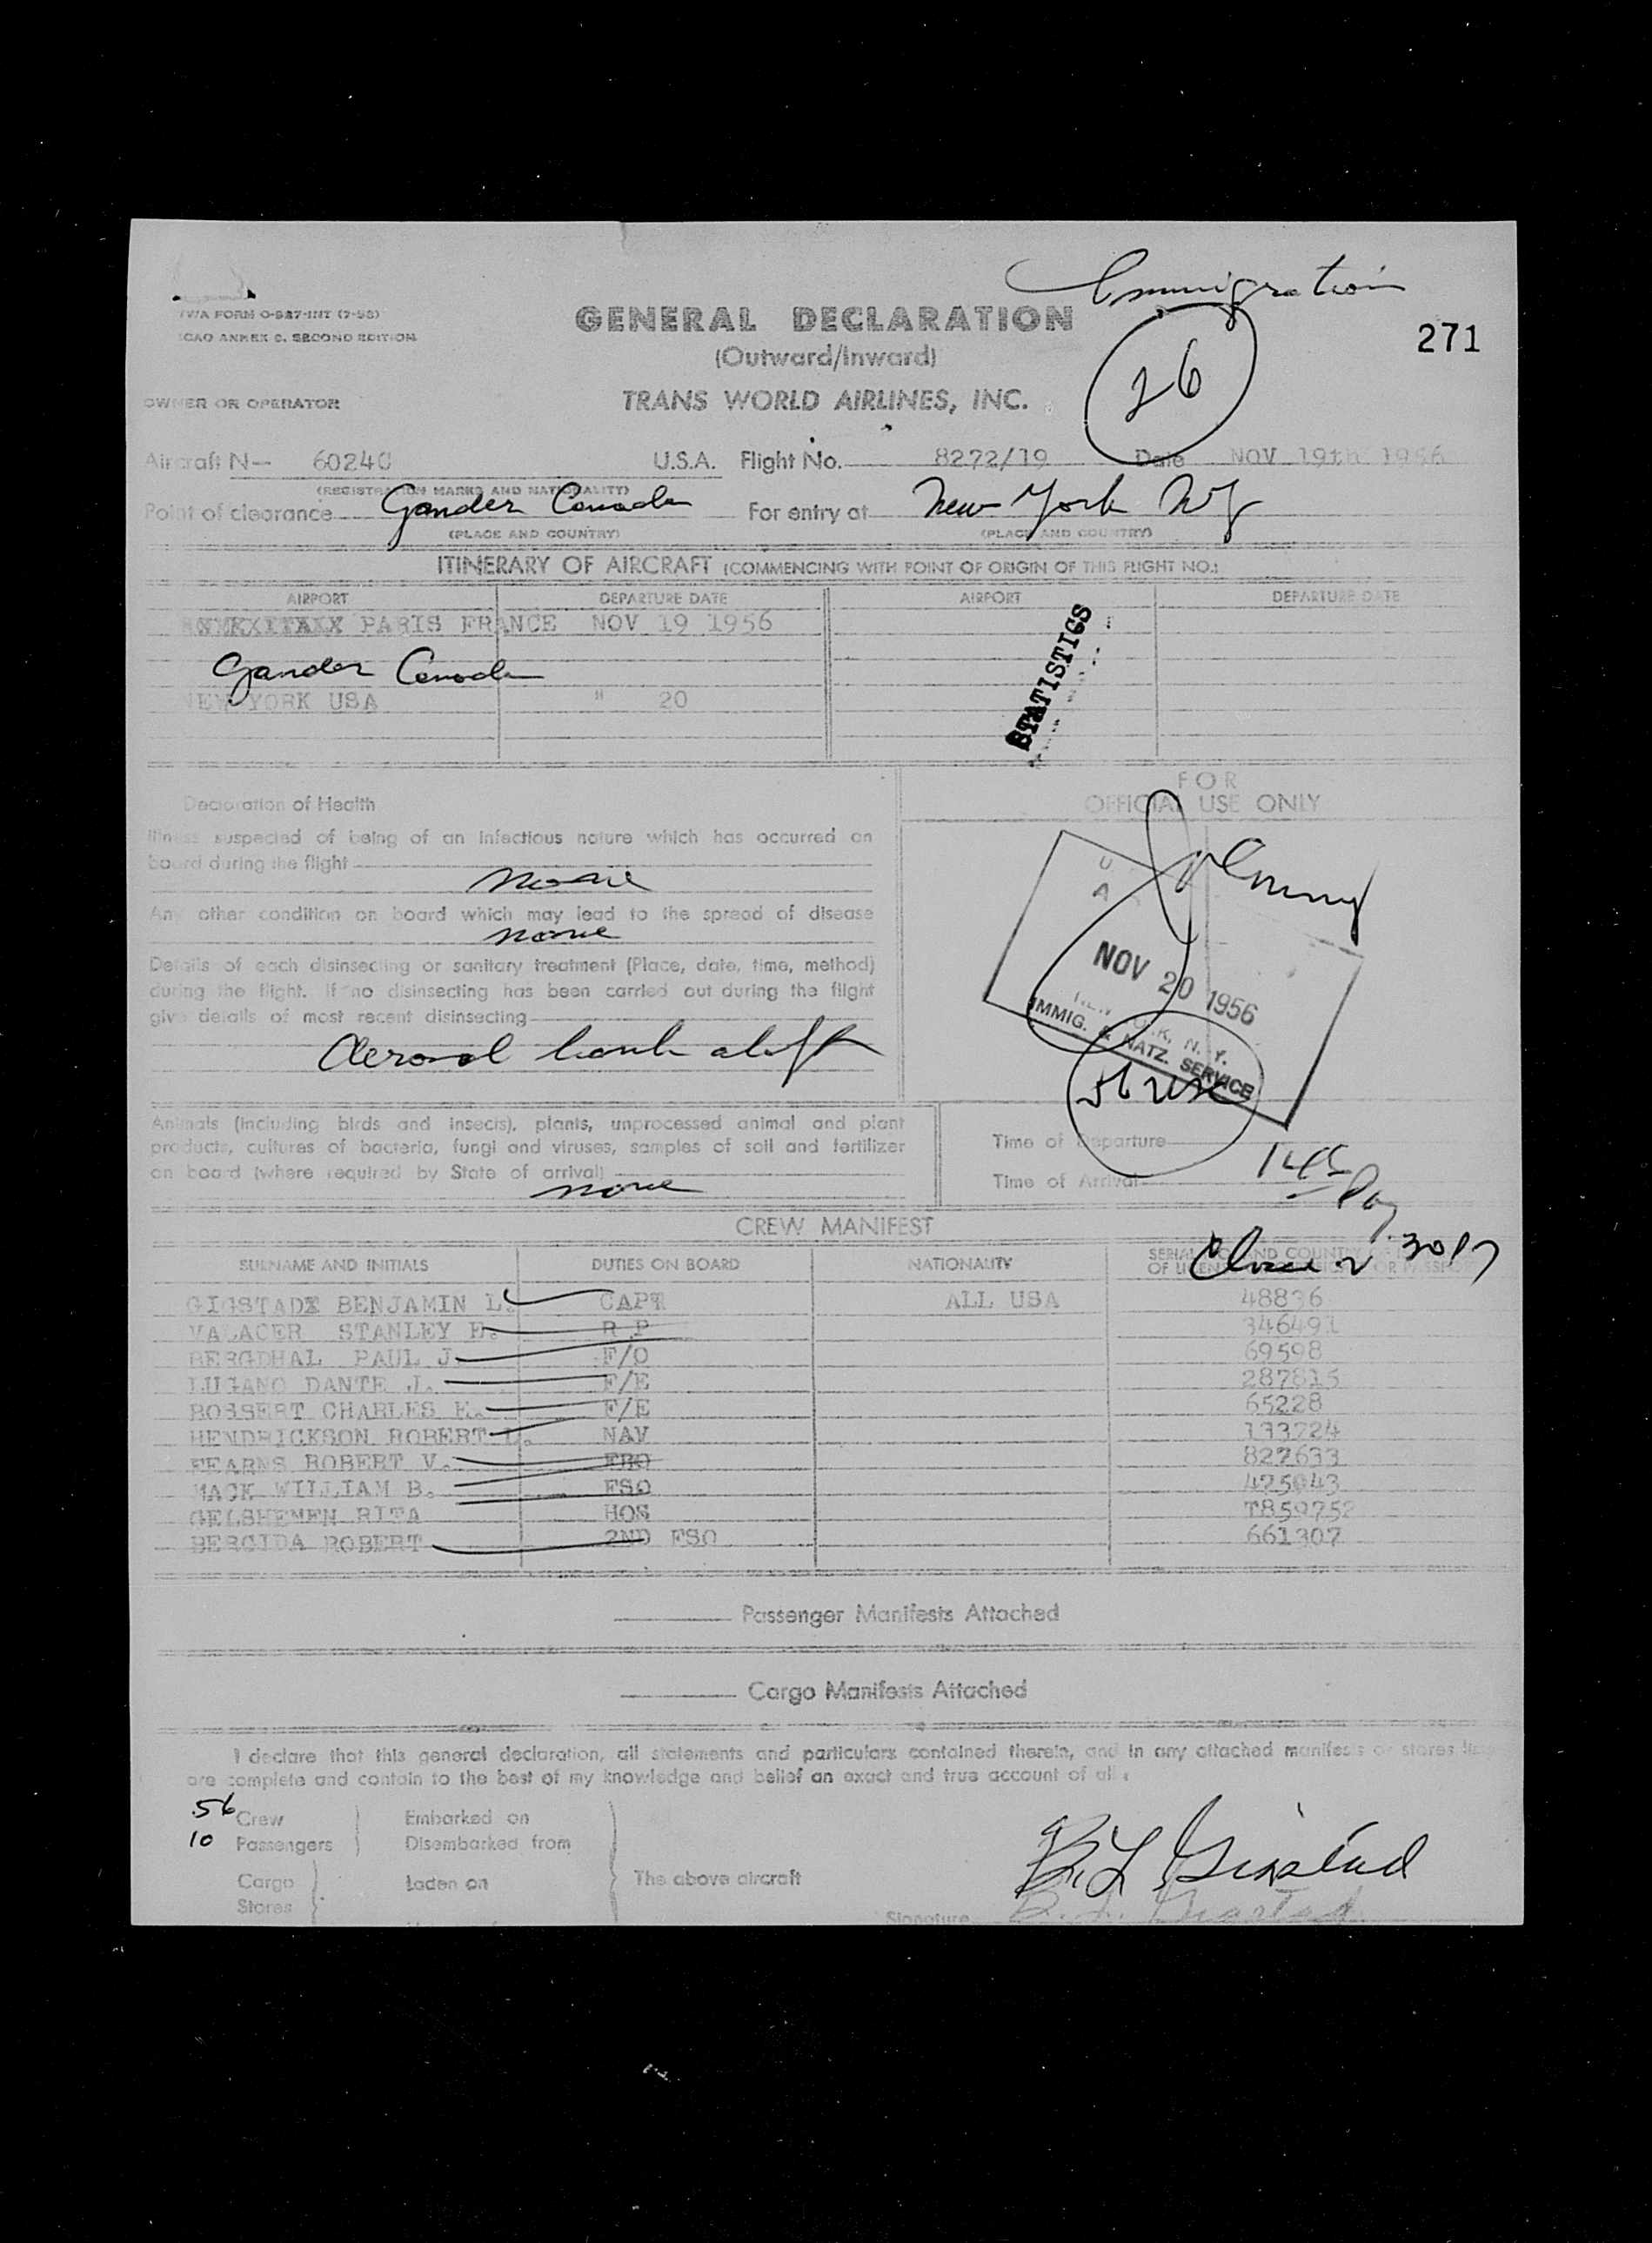 Immigration
TWA FORM O-927-INT (7-53)
ICAO ANNEX 9, SECOND EDITION
GENERAL DECLARATION
(Outward/Inward)
26
271
OWNER OR OPERATOR
TRANS WORLD AIRLINES, INC.
Aircraft N— 6024C U.S.A. Flight No. 8272/19 Date NOV 19th 1956
(REGISTRATION MARKS AND NATIONALITY)
Point of clearance Gander Canada For entry at New York NY
(PLACE AND COUNTRY) (PLACE AND COUNTRY)
ITINERARY OF AIRCRAFT (COMMENCING WITH POINT OF ORIGIN OF THIS FLIGHT NO.)
AIRPORT DEPARTURE DATE AIRPORT DEPARTURE DATE
PARIS FRANCE NOV 19 1956
Gander Canada
NEW YORK USA " 20
STATISTICS
Declaration of Health
FOR
OFFICIAL USE ONLY
Illness suspected of being of an infectious nature which has occurred on
board during the flight
None
Any other condition on board which may lead to the spread of disease
None
Details of each disinsecting or sanitary treatment (Place, date, time, method)
during the flight. If no disinsecting has been carried out during the flight
give details of most recent disinsecting
Aerosol bomb aloft
NOV 20 1956
N. Y.
IMMIG. & NATZ. SERVICE
56 usc
Animals (including birds and insects), plants, unprocessed animal and plant
products, cultures of bacteria, fungi and viruses, samples of soil and fertilizer
on board (where required by State of arrival)
None
Time of Departure
Time of Arrival 145
CREW MANIFEST
SURNAME AND INITIALS DUTIES ON BOARD NATIONALITY
GIGSTAD BENJAMIN L. CAPT ALL USA 48836
VALACER STANLEY E. R P 346491
BERGDHAL PAUL J F/O 69598
LUGANO DANTE J. F/E 287815
BOSSERT CHARLES E. F/E 65228
HENDRICKSON ROBERT L. NAV 133224
FEARNS ROBERT V. FRO 822633
MACK WILLIAM B. FSO 425043
GELSHENEN RITA HOS T859752
BERGIDA ROBERT 2ND FSO 661307
Passenger Manifests Attached
Cargo Manifests Attached
I declare that this general declaration, all statements and particulars contained therein, and in any attached manifests or stores
are complete and contain to the best of my knowledge and belief an exact and true account of all
56 Crew Embarked on
10 Passengers Disembarked from
Cargo Laden on The above aircraft
Stores
B. L. Gigstad
Signature